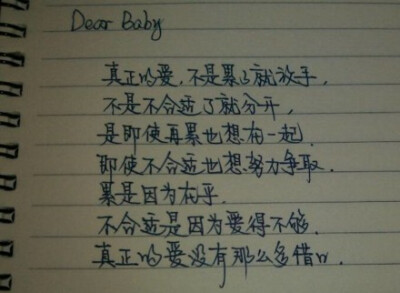 Dear Baby
真正的爱,不是累了就放手,
不是不合适了就分开,
是即使再累也想在一起
即使不合适也想努力争取.
累是因为在乎.
不合适是因为爱得不够.
真正的爱没有那么多借口.